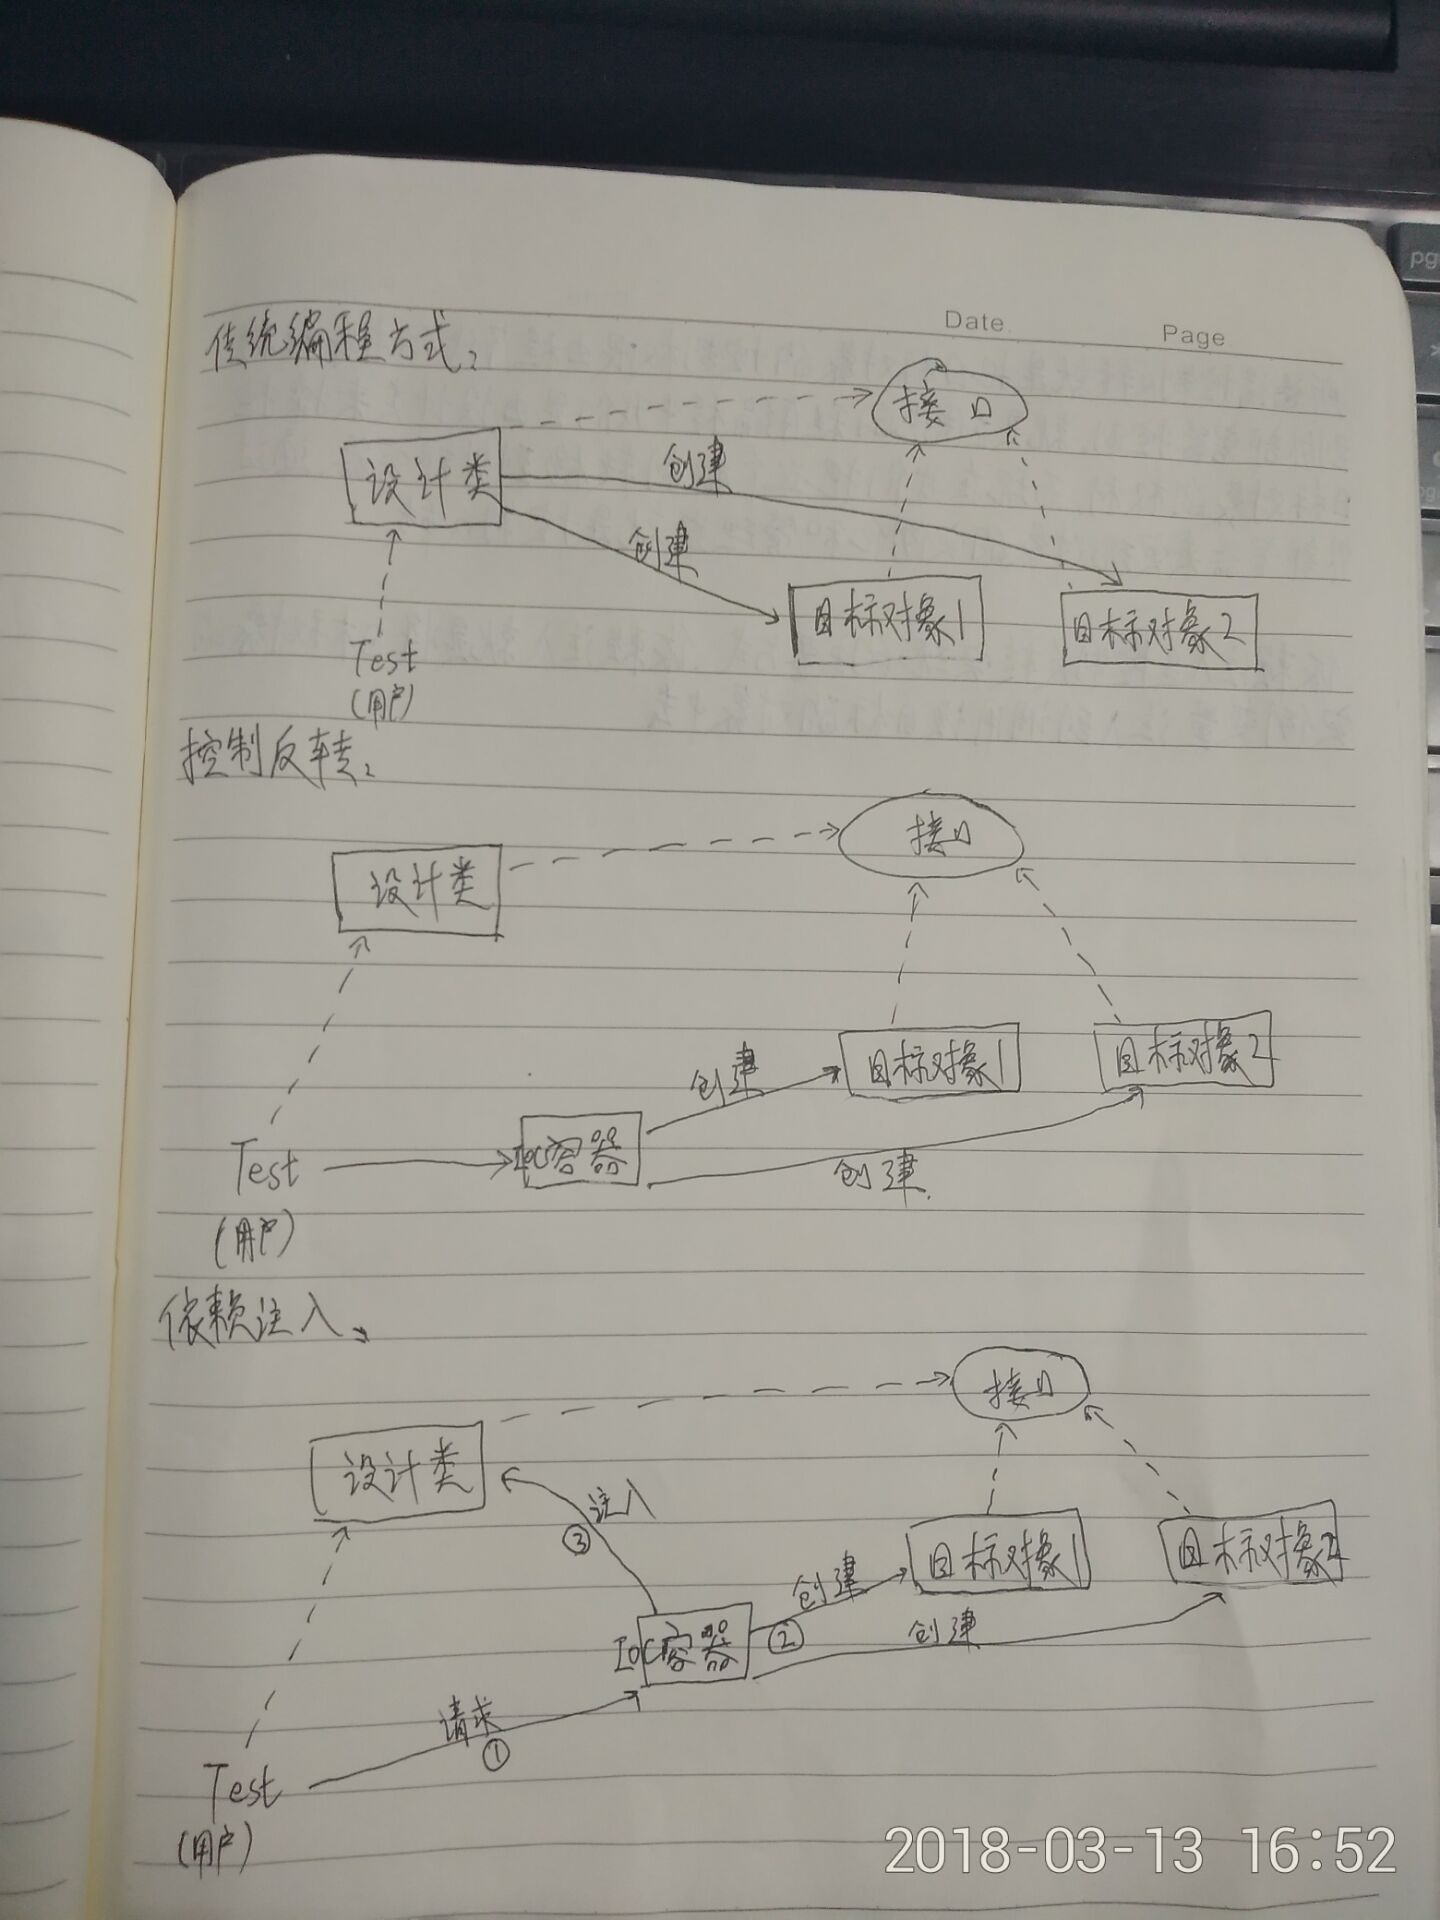 Date
Page
传统编程方式：
接口
设计类
创建
创建
目标对象1
目标对象2
Test
(用户)
控制反转：
接口
设计类
目标对象1
目标对象2
创建
IoC容器
创建
Test
(用户)
依赖注入：
接口
设计类
注入
③
目标对象1
目标对象2
创建
②
创建
IoC容器
请求
①
Test
(用户)
2018-03-13 16:52
pg